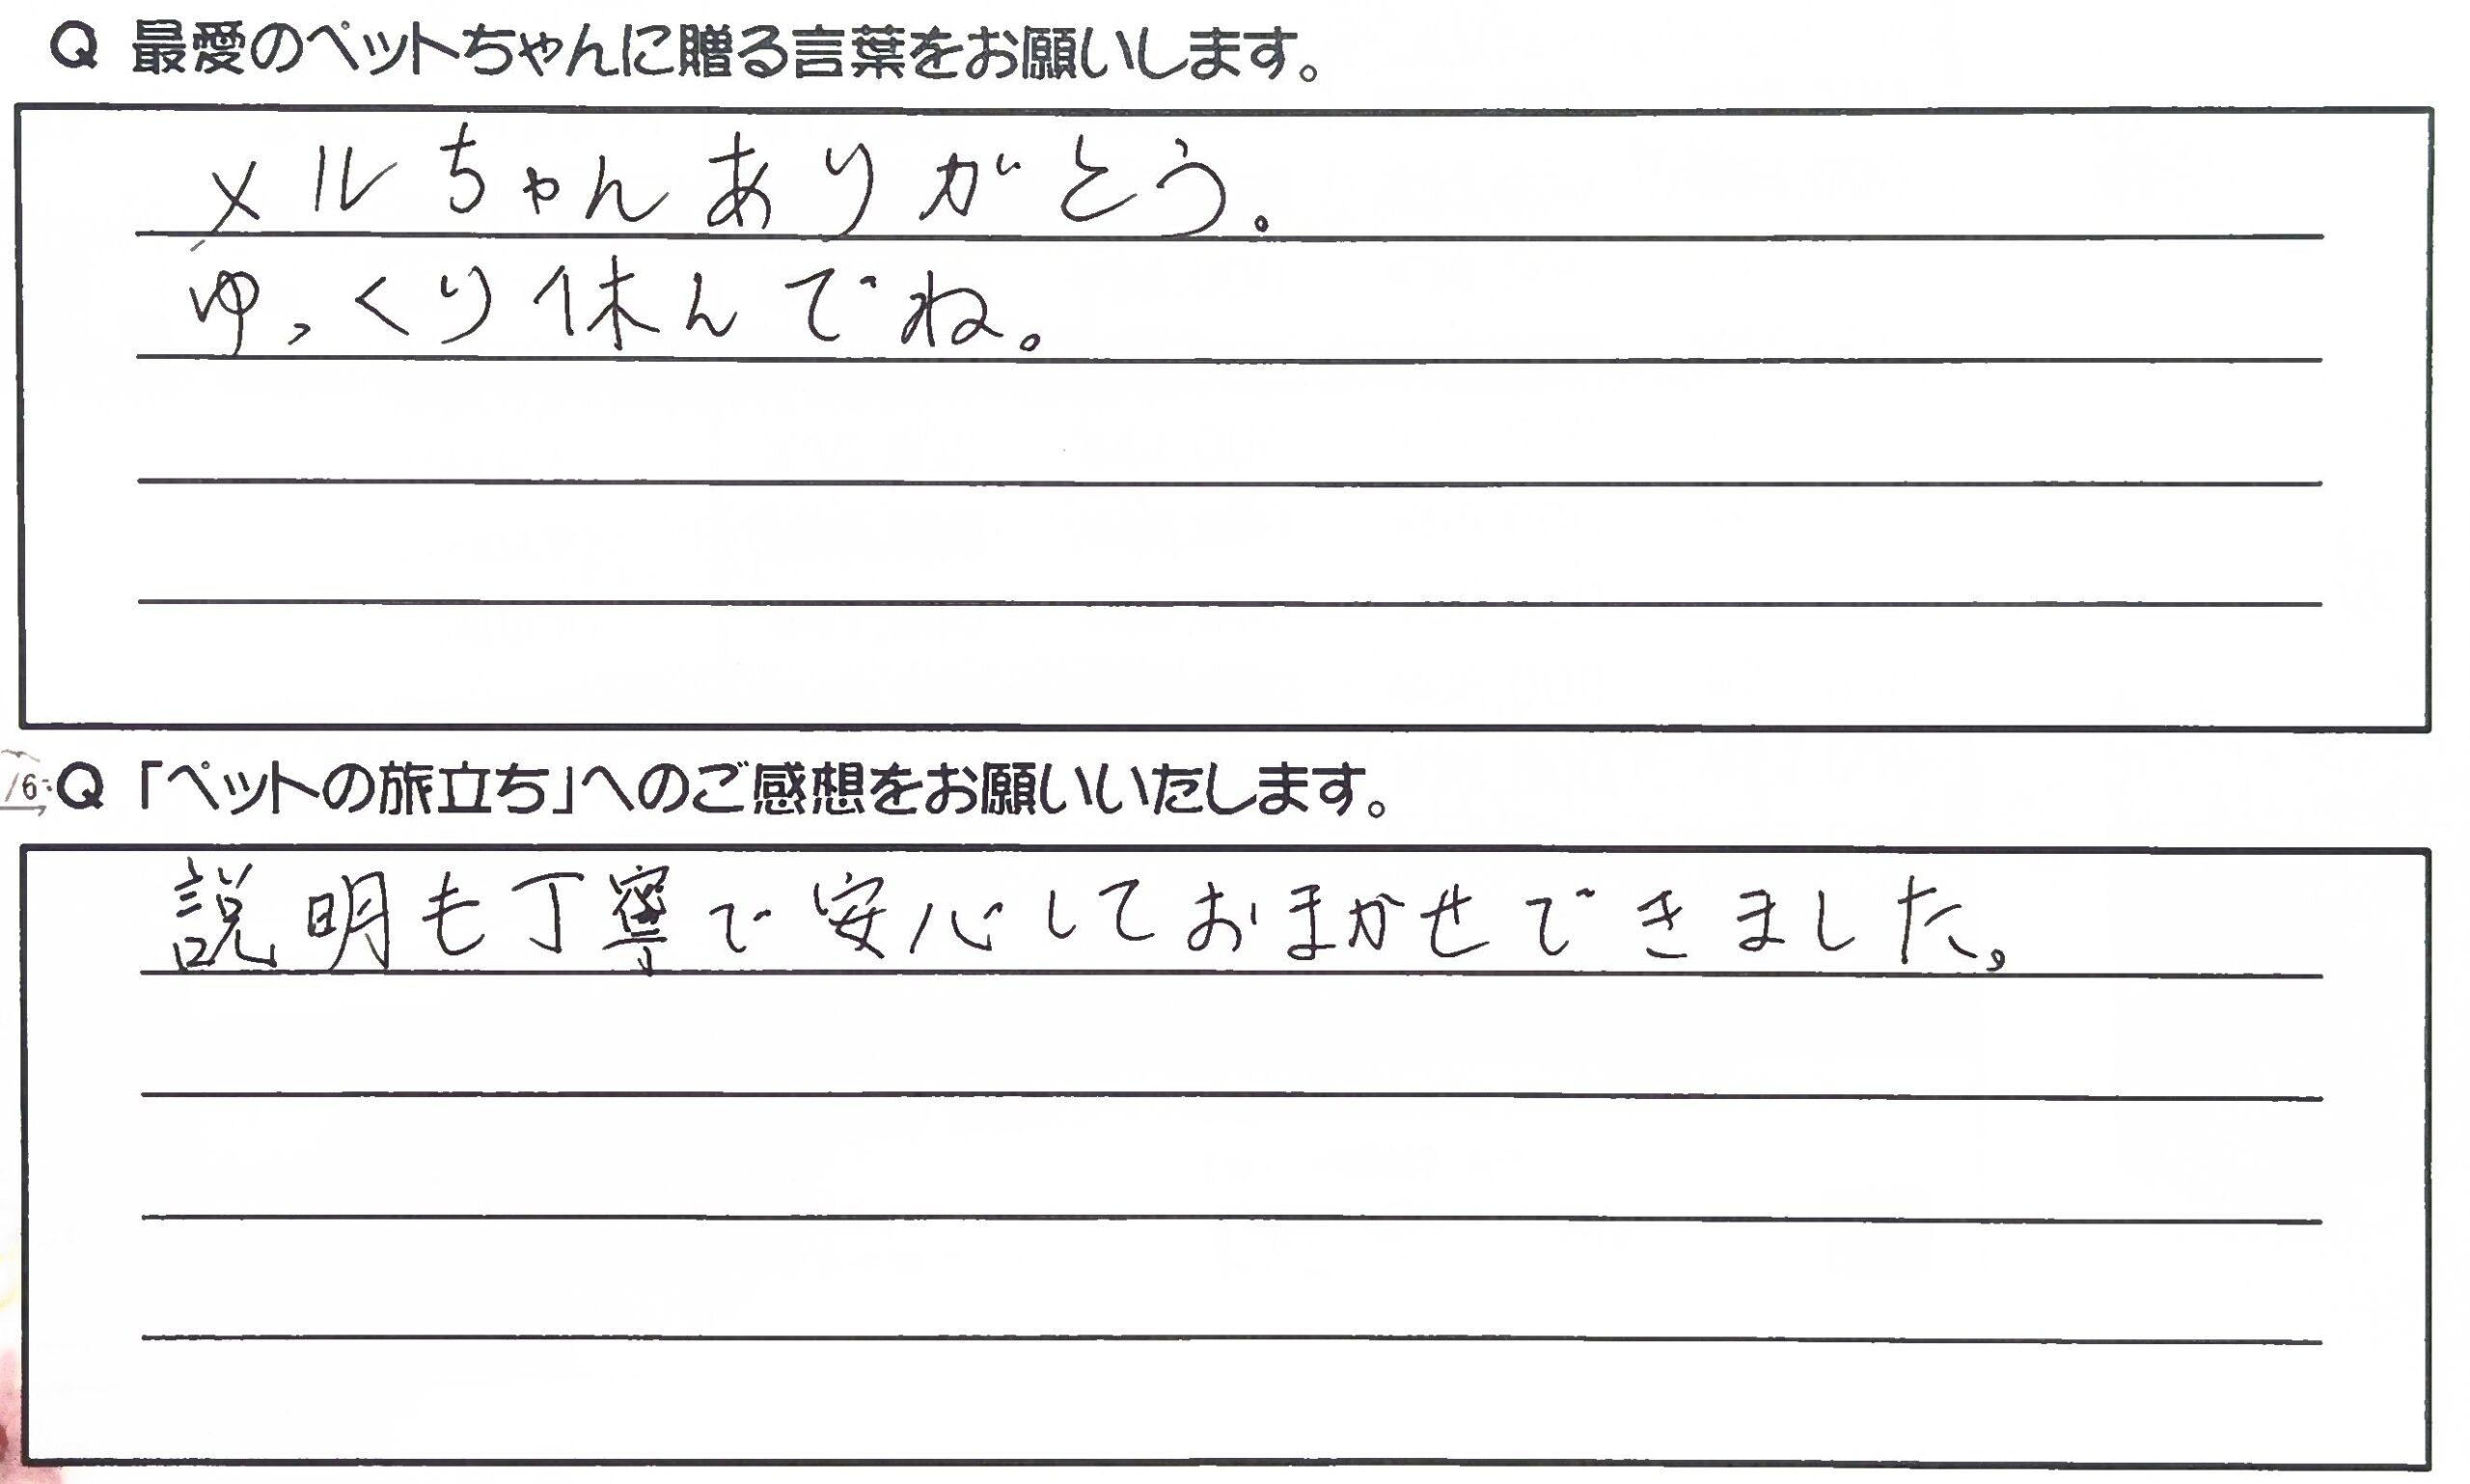 Q 最愛のペットちゃんに贈る言葉をお願いします。
メルちゃんありがとう。
ゆっくり休んでね。
Q 「ペットの旅立ち」へのご感想をお願いいたします。
説明も丁寧で安心しておまかせできました。